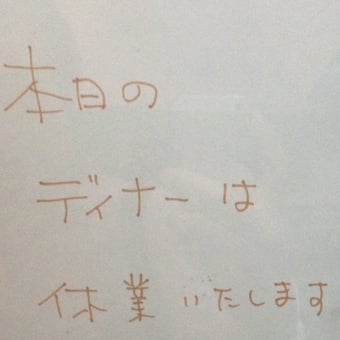 本日の
ディナーは
休業いたします